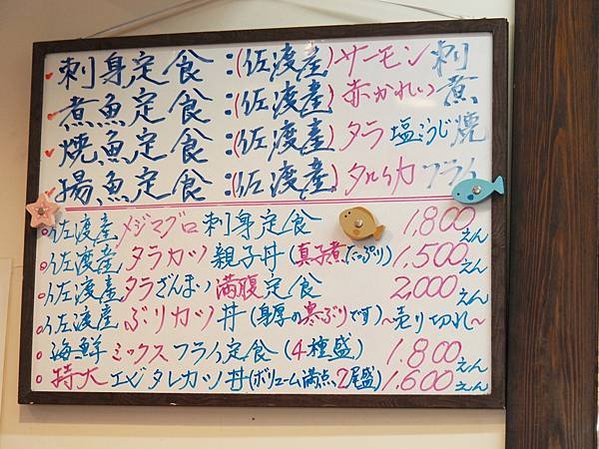 刺身定食:(佐渡産)サーモン刺
煮魚定食:(佐渡産)赤かれい煮
焼魚定食:(佐渡産)タラ塩こうじ焼
揚魚定食:(佐渡産)タルイカフライ
佐渡産メジマグロ刺身定食 1,800えん
佐渡産タラカツ親子丼(真子煮たっぷり)1,500えん
佐渡産タラざんまい満腹定食 2,000えん
佐渡産ぶりカツ丼(身厚の寒ぶりです)~売り切れ~
海鮮ミックスフライ定食(4種盛)1,800えん
特大エビタレカツ丼(ボリューム満点、2尾盛)1,600えん